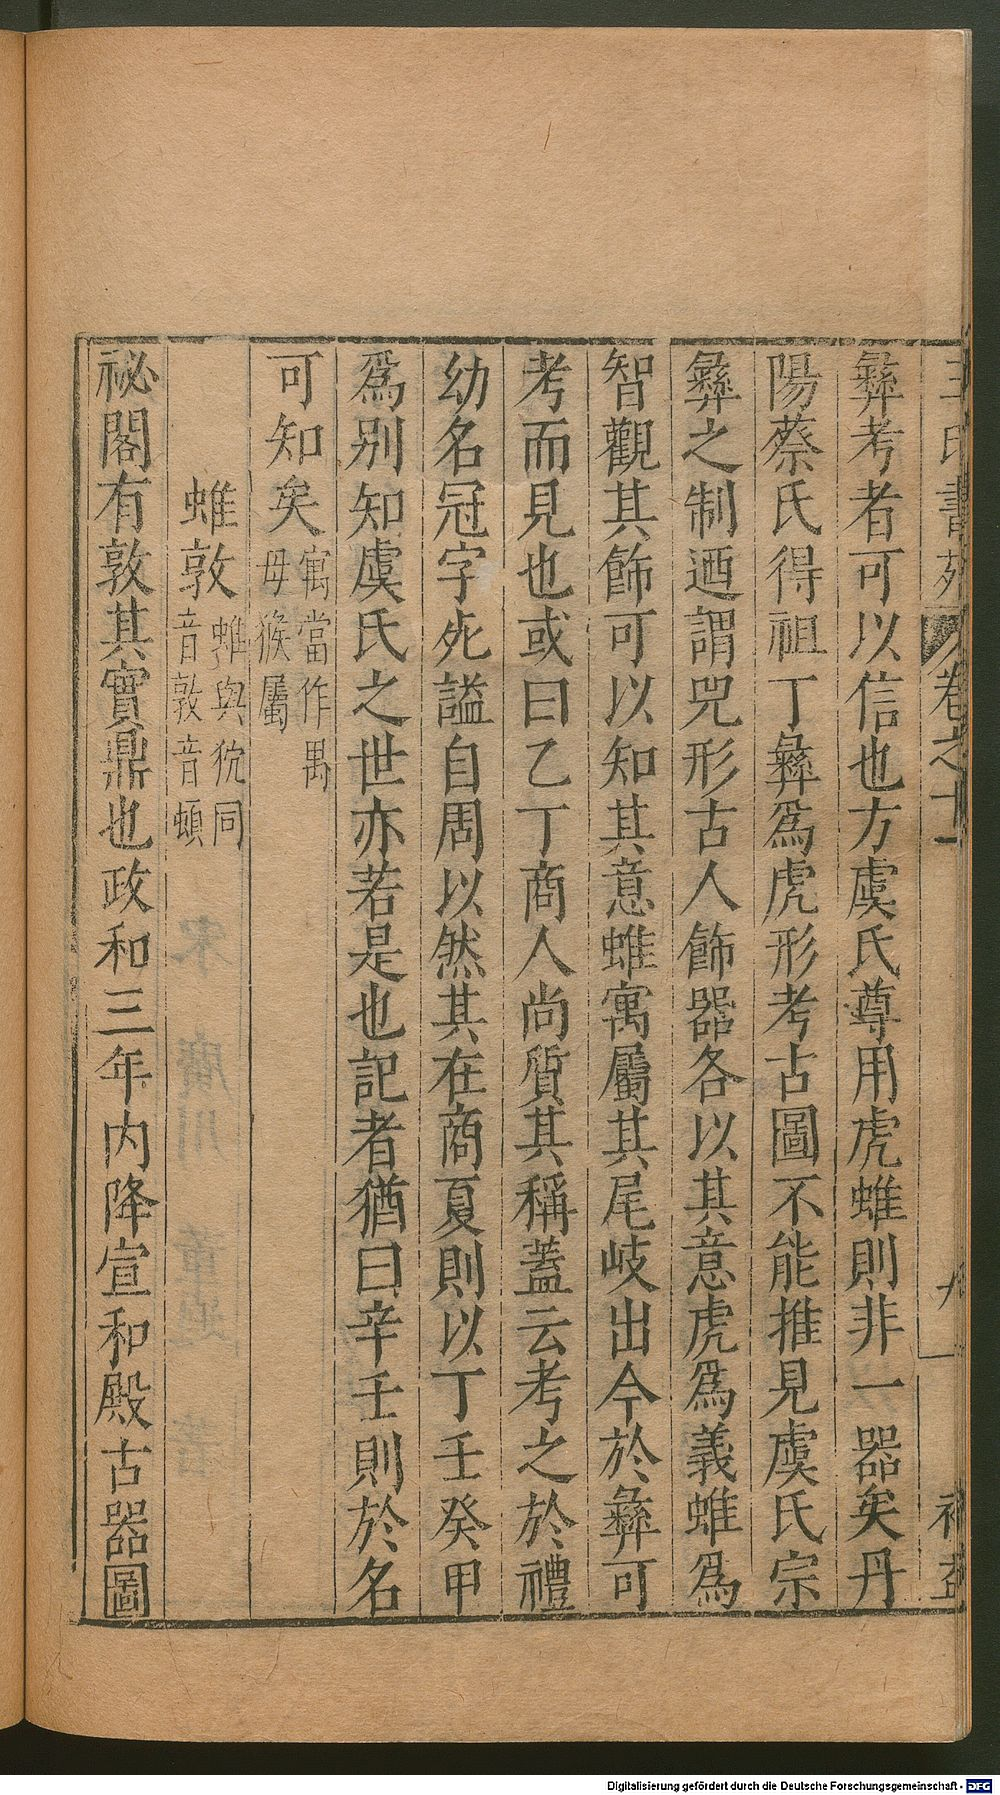 王氏書苑 卷之十一 九
彝考者可以信也方虞氏尊用虎蜼則非一器矣丹
陽蔡氏得祖丁彝爲虎形考古圖不能推見虞氏宗
彝之制迺謂兕形古人飾器各以其意虎爲義蜼爲
智觀其飾可以知其意蜼寓屬其尾岐出今於彝可
考而見也或曰乙丁商人尚質其稱蓋云考之於禮
幼名冠字死謚自周以然其在商夏則以丁壬癸甲
爲别知虞氏之世亦若是也記者猶曰辛壬則於名
可知矣寓當作禺
母猴屬
蜼敦蜼與狖同
音敦音頓
祕閣有敦其實鼎也政和三年内降宣和殿古器圖
Digitalisierung gefördert durch die Deutsche Forschungsgemeinschaft - DFG